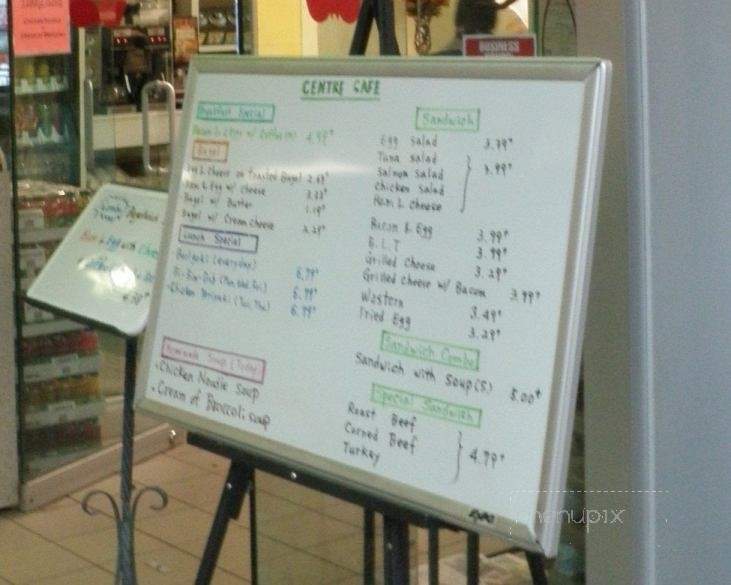 CENTRE CAFE
Breakfast Special
4.99+
Bagel
Egg & Cheese on Toasted Bagel 2.69+
Egg w/ Cheese
Bagel w/ Butter
Bagel w/ Cream Cheese 2.29+
Lunch Special
(everyday) 6.79+
Bi-Bim-Bob (Mon, Wed, Fri) 6.99+
Chicken Teriyaki (Tue, Thu) 6.99+
Homemade Soup (Today)
• Chicken Noodle Soup
• Cream of Broccoli Soup
Sandwich
Egg Salad 3.79+
Tuna Salad
Salmon Salad 3.99+
Chicken Salad
Ham & Cheese
Bacon & Egg 3.99+
B.L.T 3.99+
Grilled Cheese 3.29+
Grilled Cheese w/ Bacon 3.99+
Western 3.49+
Fried Egg 3.29+
Sandwich Combo
Sandwich with Soup(S) 5.00+
Special Sandwich
Roast Beef
Corned Beef 4.79+
Turkey
BUSINESS
menupix